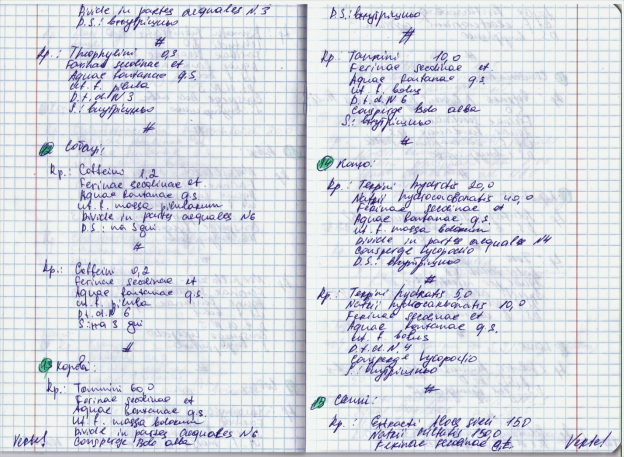 Divide in partes aequales N. 3
D. S.: внутрішньо
#
Rp.: Theophyllini 0,3
Farinae secalinae et
Aquae fontanae q.s.
ut f. pilula
D. t. d. N 3
S.: внутрішньо
#
12 Собаці:
Rp.: Coffeini 1,2
Ferinae secalinae et
Aquae fontanae q.s.
ut f. massa pilularum
Divide in partes aequales N6
D.S.: на 3 дні
#
Rp.: Coffeini 0,2
Ferinae secalinae et
Aquae fontanae q.s.
ut f. pilula
D.t.d. N 6
S.: на 3 дні
#
13 Корові:
Rp.: Tannini 60,0
Ferinae secalinae et
Aquae fontanae q.s.
ut f. massa bolorum
Divide in partes aequales N6
Consperge Bolo alba
Verte!
D.S.: внутрішньо
#
Rp. Tannini 10,0
Ferinae secalinae et
Aquae fontanae q.s.
ut f. bolus
D. t. d. N 6
Consperge Bolo alba
S.: внутрішньо
#
14 Коню:
Rp.: Terpini hydratis 20,0
Natrii hydrocarbonatis 40,0
Ferinae secalinae et
Aquae fontanae q.s.
ut f. massa bolorum
Divide in partes aequales N4
Consperge Lycopodio
D.S.: Внутрішньо
#
Rp.: Terpini hydratis 5,0
Natrii hydrocarbonatis 10,0
Ferinae secalinae et
Aquae fontanae q.s.
ut f. bolus
D.t.d N. 4
Consperge Lycopodio
S.: внутрішньо
#
15 Свині:
Rp.: Extracti Aloes sicci 15,0
Natrii 150,0
Ferinae secalinae et
Verte!